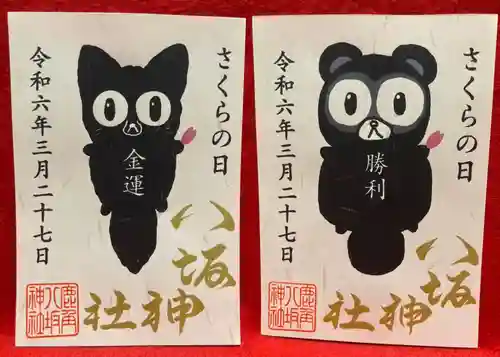 さくらの日
金運
令和六年三月二十七日
八坂神社
鹿角
八坂
神社
さくらの日
勝利
令和六年三月二十七日
八坂神社
鹿角
八坂
神社